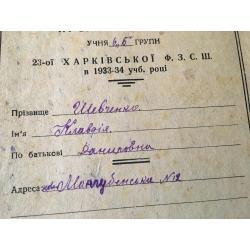 УЧНЯ 4 Б ГРУПИ
23-ої ХАРКІВСЬКОЇ Ф. З. С. Ш.
в 1933-34 учб. році
Прізвище Шевченко
Ім'я Клавдія
По батькові Даниловна
Адреса №12